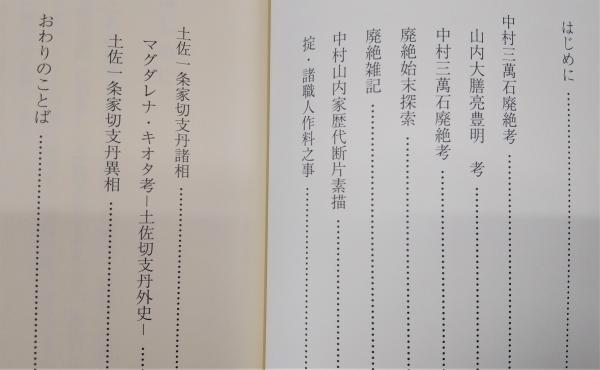 はじめに
中村三萬石廃絶考
山内大膳亮豊明　考
中村三萬石廃絶考
廃絶始末探索
廃絶雑記
中村山内家歴代断片素描
掟・諸職人作料之事
土佐一条家切支丹諸相
マグダレナ・キオタ考―土佐切支丹外史―
土佐一条家切支丹異相
おわりのことば